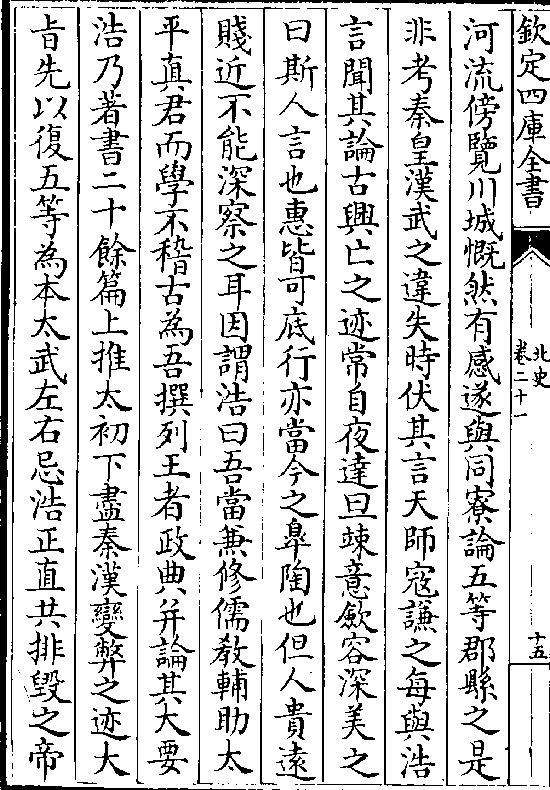 欽定四庫全書
北史
卷二十一
十五
河流傍覽川城慨然有感遂與同寮論五等郡縣之是
非考秦皇漢武之違失時伏其言天師寇謙之每與浩
言聞其論古興亡之迹常自夜達旦竦意斂容深美之
曰斯人言也惠皆可底行亦當今之臯陶也但人貴遠
賤近不能深察之耳因謂浩曰吾當兼修儒教輔助太
平真君而學不稽古為吾撰列王者政典并論其大要
浩乃著書二十餘篇上推太初下盡秦漢變弊之迹大
㫖先以復五等為本太武左右忌浩正直共排毀之帝